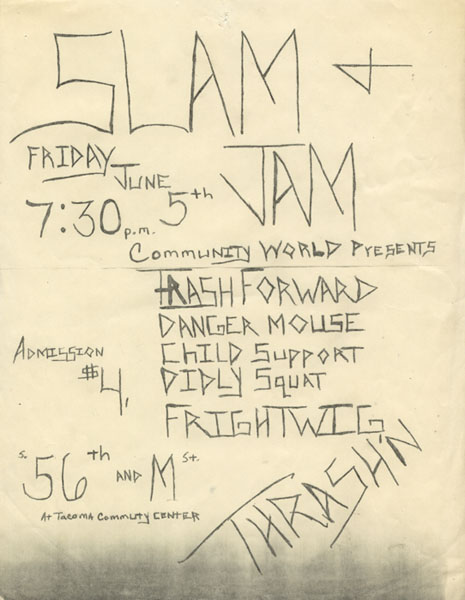 SLAM +
JAM
FRIDAY
JUNE 5th
7:30 p.m.
Community WORLD Presents
TRASH FORWARD
DANGER MOUSE
CHILD SUPPORT
DIDLY SQUAT
FRIGHTWIG
ADMISSION
$4.
S. 56th AND M St.
At Tacoma Commuty CENTER
THRASH'N